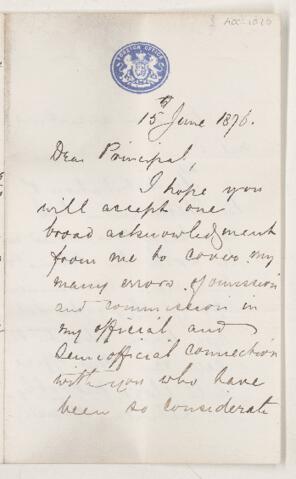 FOREIGN OFFICE
15 June 1876.
Dear Principal,
I hope you
will accept one
broad acknowledgment
from me to cover my
many errors of omission
and commission in
my official and
semiofficial connection
with you who have
been so considerate